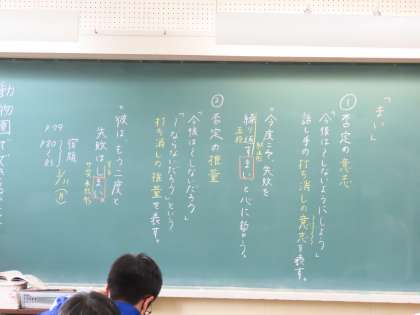 「まい」
① 否定の意志
「今後は〜しないようにしよう」
話し手の打ち消しの意志を表す。
"今度こそ、失敗を
繰り返すまい"と心に誓う。
五段
終止形
② 否定の推量
「今後は〜しないだろう」
「〜ならないだろう」という
打ち消しの推量を表す。
"彼は、もう二度と
失敗はしまい。"
サ変未然形
宿題
P.79
P.80
動物園でできること